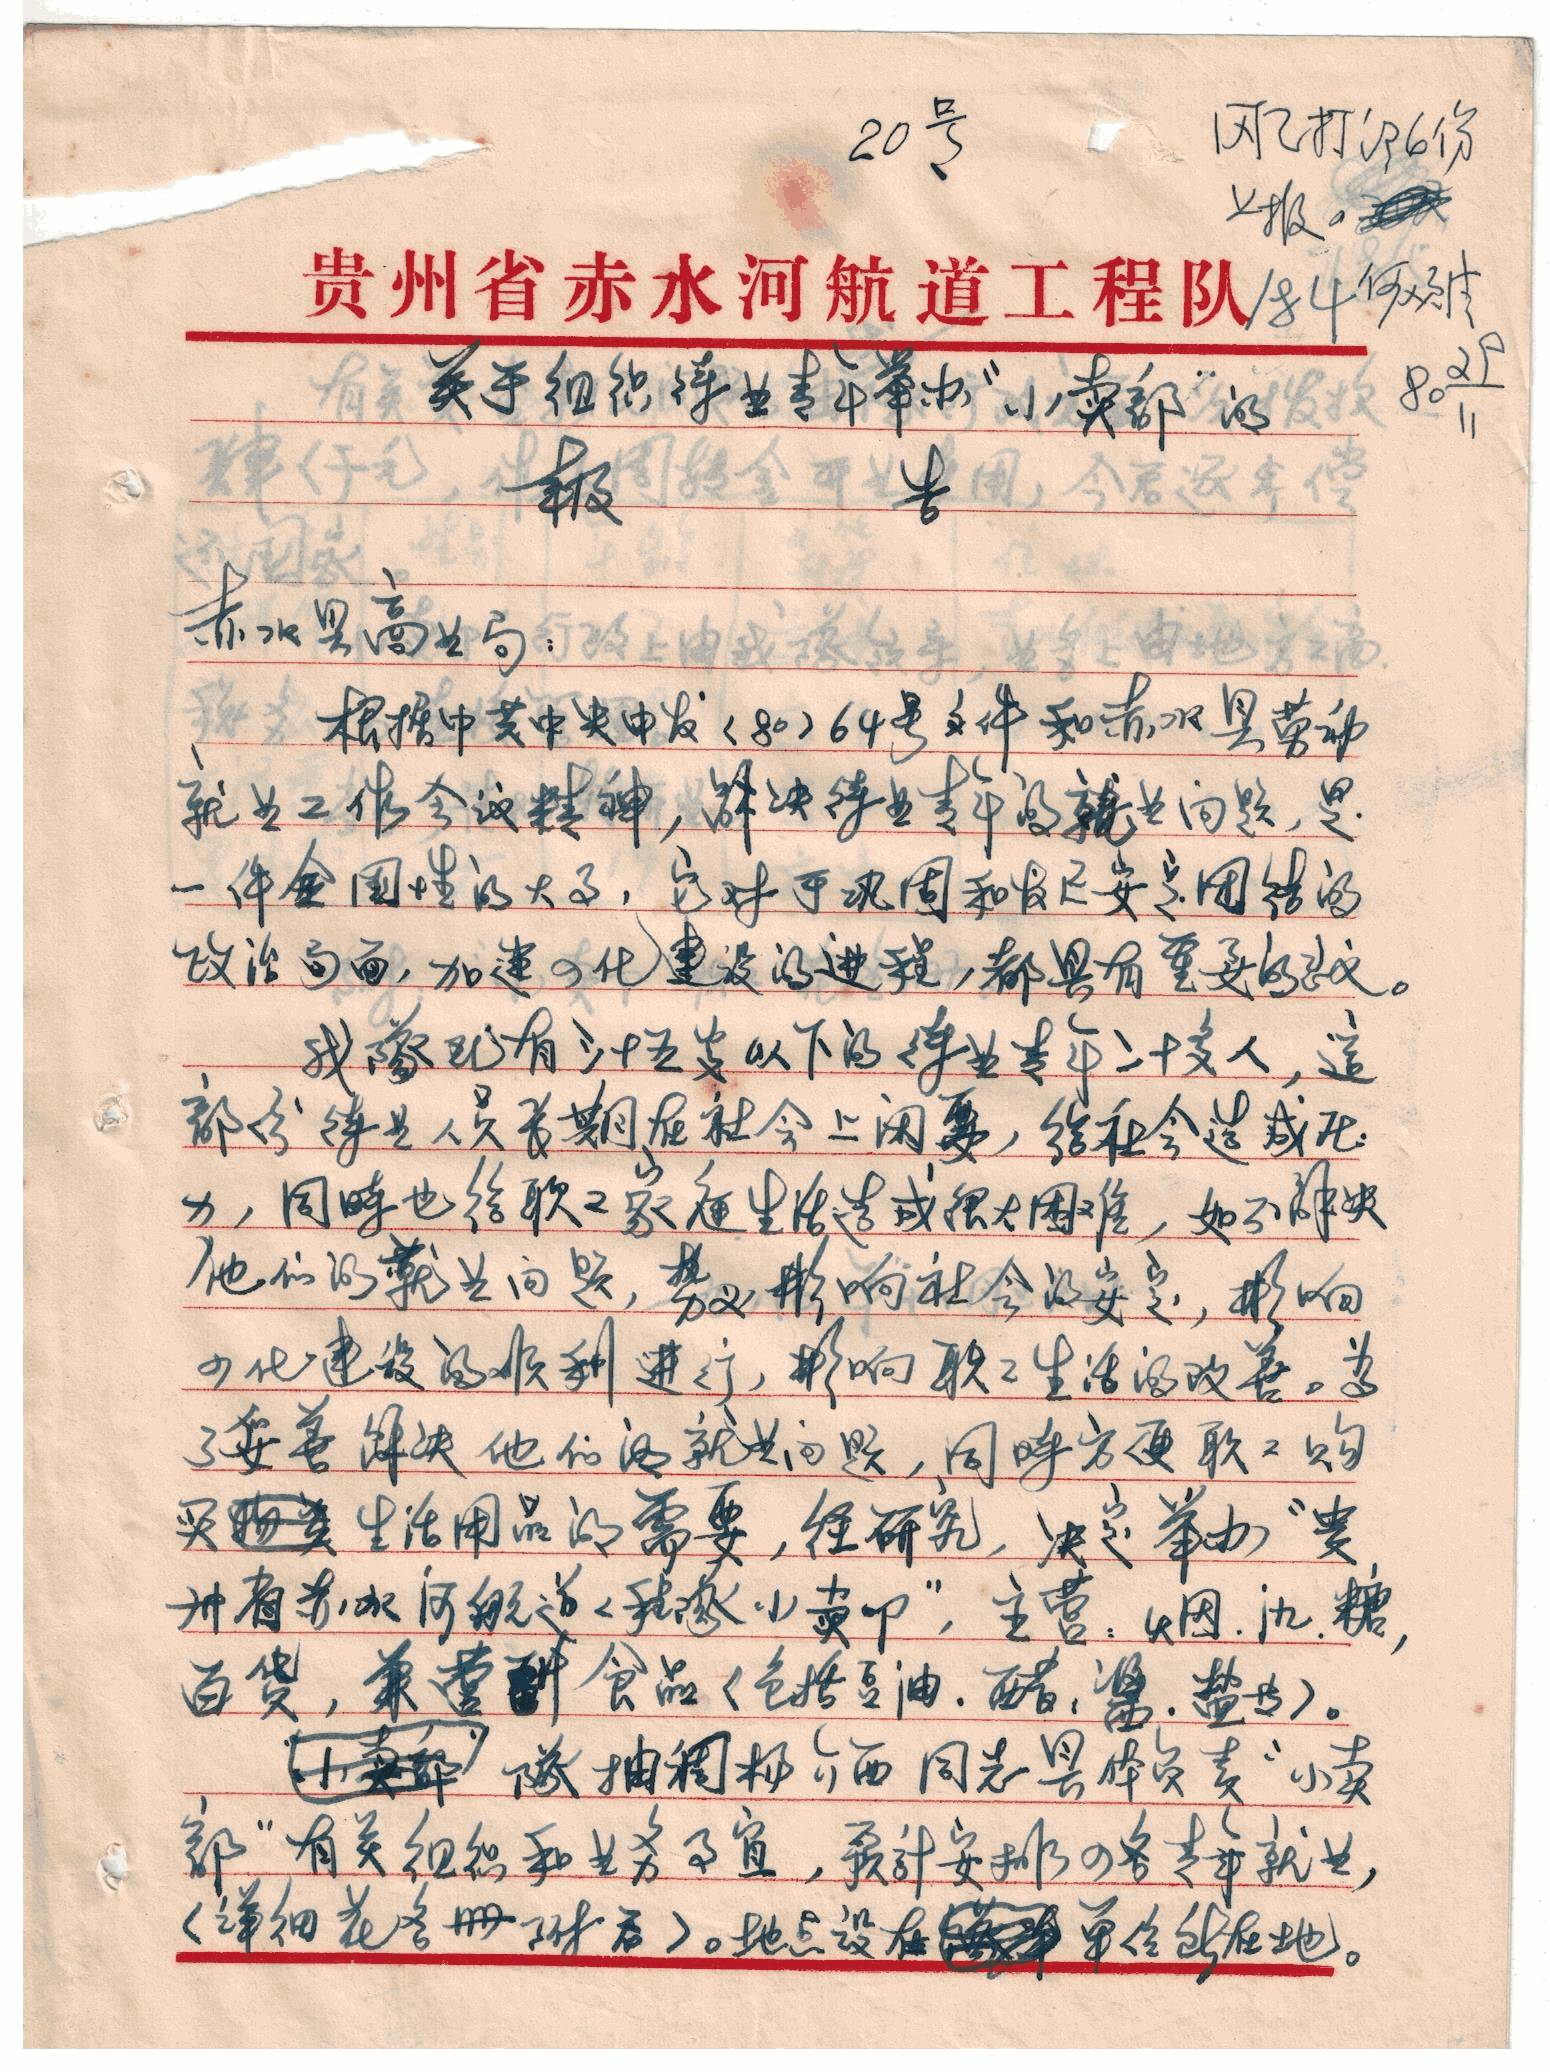 20号
打印6份
上报。
贵州省赤水河航道工程队
80 29/11
关于组织待业青年举办"小卖部"的
报 告
赤水县商业局：
根据中共中央中发（80）64号文件和赤水县劳动
就业工作会议精神，解决待业青年的就业问题，是
一件全国性的大事，它对于巩固和发展安定团结的
政治局面，加速四化建设的进程，都具有重要的意义。
我隊现有三十五岁以下的待业青年二十多人，這
部份待业人员长期在社会上闲耍，给社会造成压
力，同時也给职工家庭生活造成很大困难，如不解决
他们的就业问题，势必影响社会的安定，影响
四化建设的顺利进行，影响职工生活的改善。为
了妥善解决他们的就业问题，同時方便职工购
买生活用品的需要，经研究，决定举办"贵
州省赤水河航道工程隊小卖卩"，主营：烟.氿.糖，
百货，兼营付食品（包括豆油.醋.酱.盐廿）。
"小卖部"隊抽稠杨介西同志具体负责"小卖
部"有关组织和业务事宜，预計安排四名青年就业，
（详细花名册附后）。地点設在单位所在地。